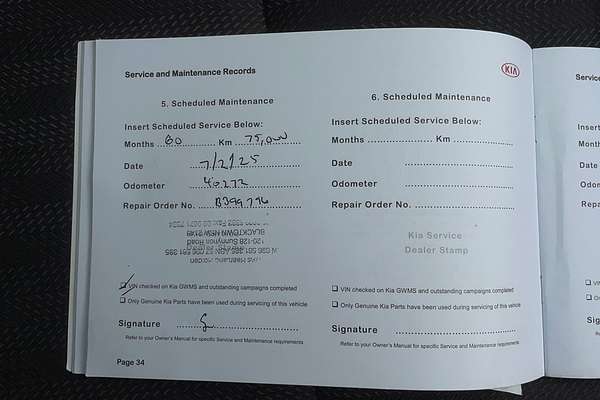 Service and Maintenance Records
KIA
5. Scheduled Maintenance
Insert Scheduled Service Below:
Months 60 Km 75,000
Date 7/2/25
Odometer
Repair Order No. B399776
BLACKTOWN NSW 2148
120-128 Sunnyholt Road
VIN checked on Kia GWMS and outstanding campaigns completed
Only Genuine Kia Parts have been used during servicing of this vehicle
Signature
Refer to your Owner's Manual for specific Service and Maintenance requirements
Page 34
6. Scheduled Maintenance
Insert Scheduled Service Below:
Months Km
Date
Odometer
Repair Order No.
Kia Service
Dealer Stamp
VIN checked on Kia GWMS and outstanding campaigns completed
Only Genuine Kia Parts have been used during servicing of this vehicle
Signature
Refer to your Owner's Manual for specific Service and Maintenance requirements
Service
Insert
Month
Date
Odom
Repai
VIN
Only
Sig